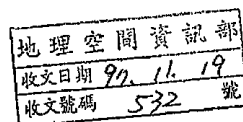 地理空間資訊部
收文日期 97. 11. 19
收文號碼 532 號